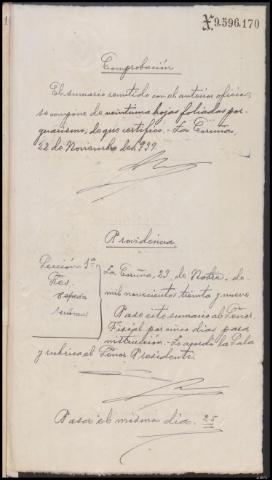 X9.596.170
Comprobación
El sumario remitido con el anterior oficio,
se compone de veintiuna hojas foliadas por
guarismo, de que certifico.- La Coruña,
22 de Noviembre de 1939.
Providencia
Sección 1ª
Sres.
España
La Coruña, 23 de Nobre. de
mil novecientos treinta y nueve
Pase este sumario al Señor
Fiscal por cinco dias para
instrucción.- Lo acordó la Sala
y rubrica el Señor Presidente.
Pasa el mismo dia. 25